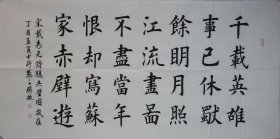 千載英雄
事已休獨
餘明月照
江流畫圖
不盡當年
恨却寫蘇
家赤壁遊
宋戴表元詩題赤壁圖 歲在
丁酉